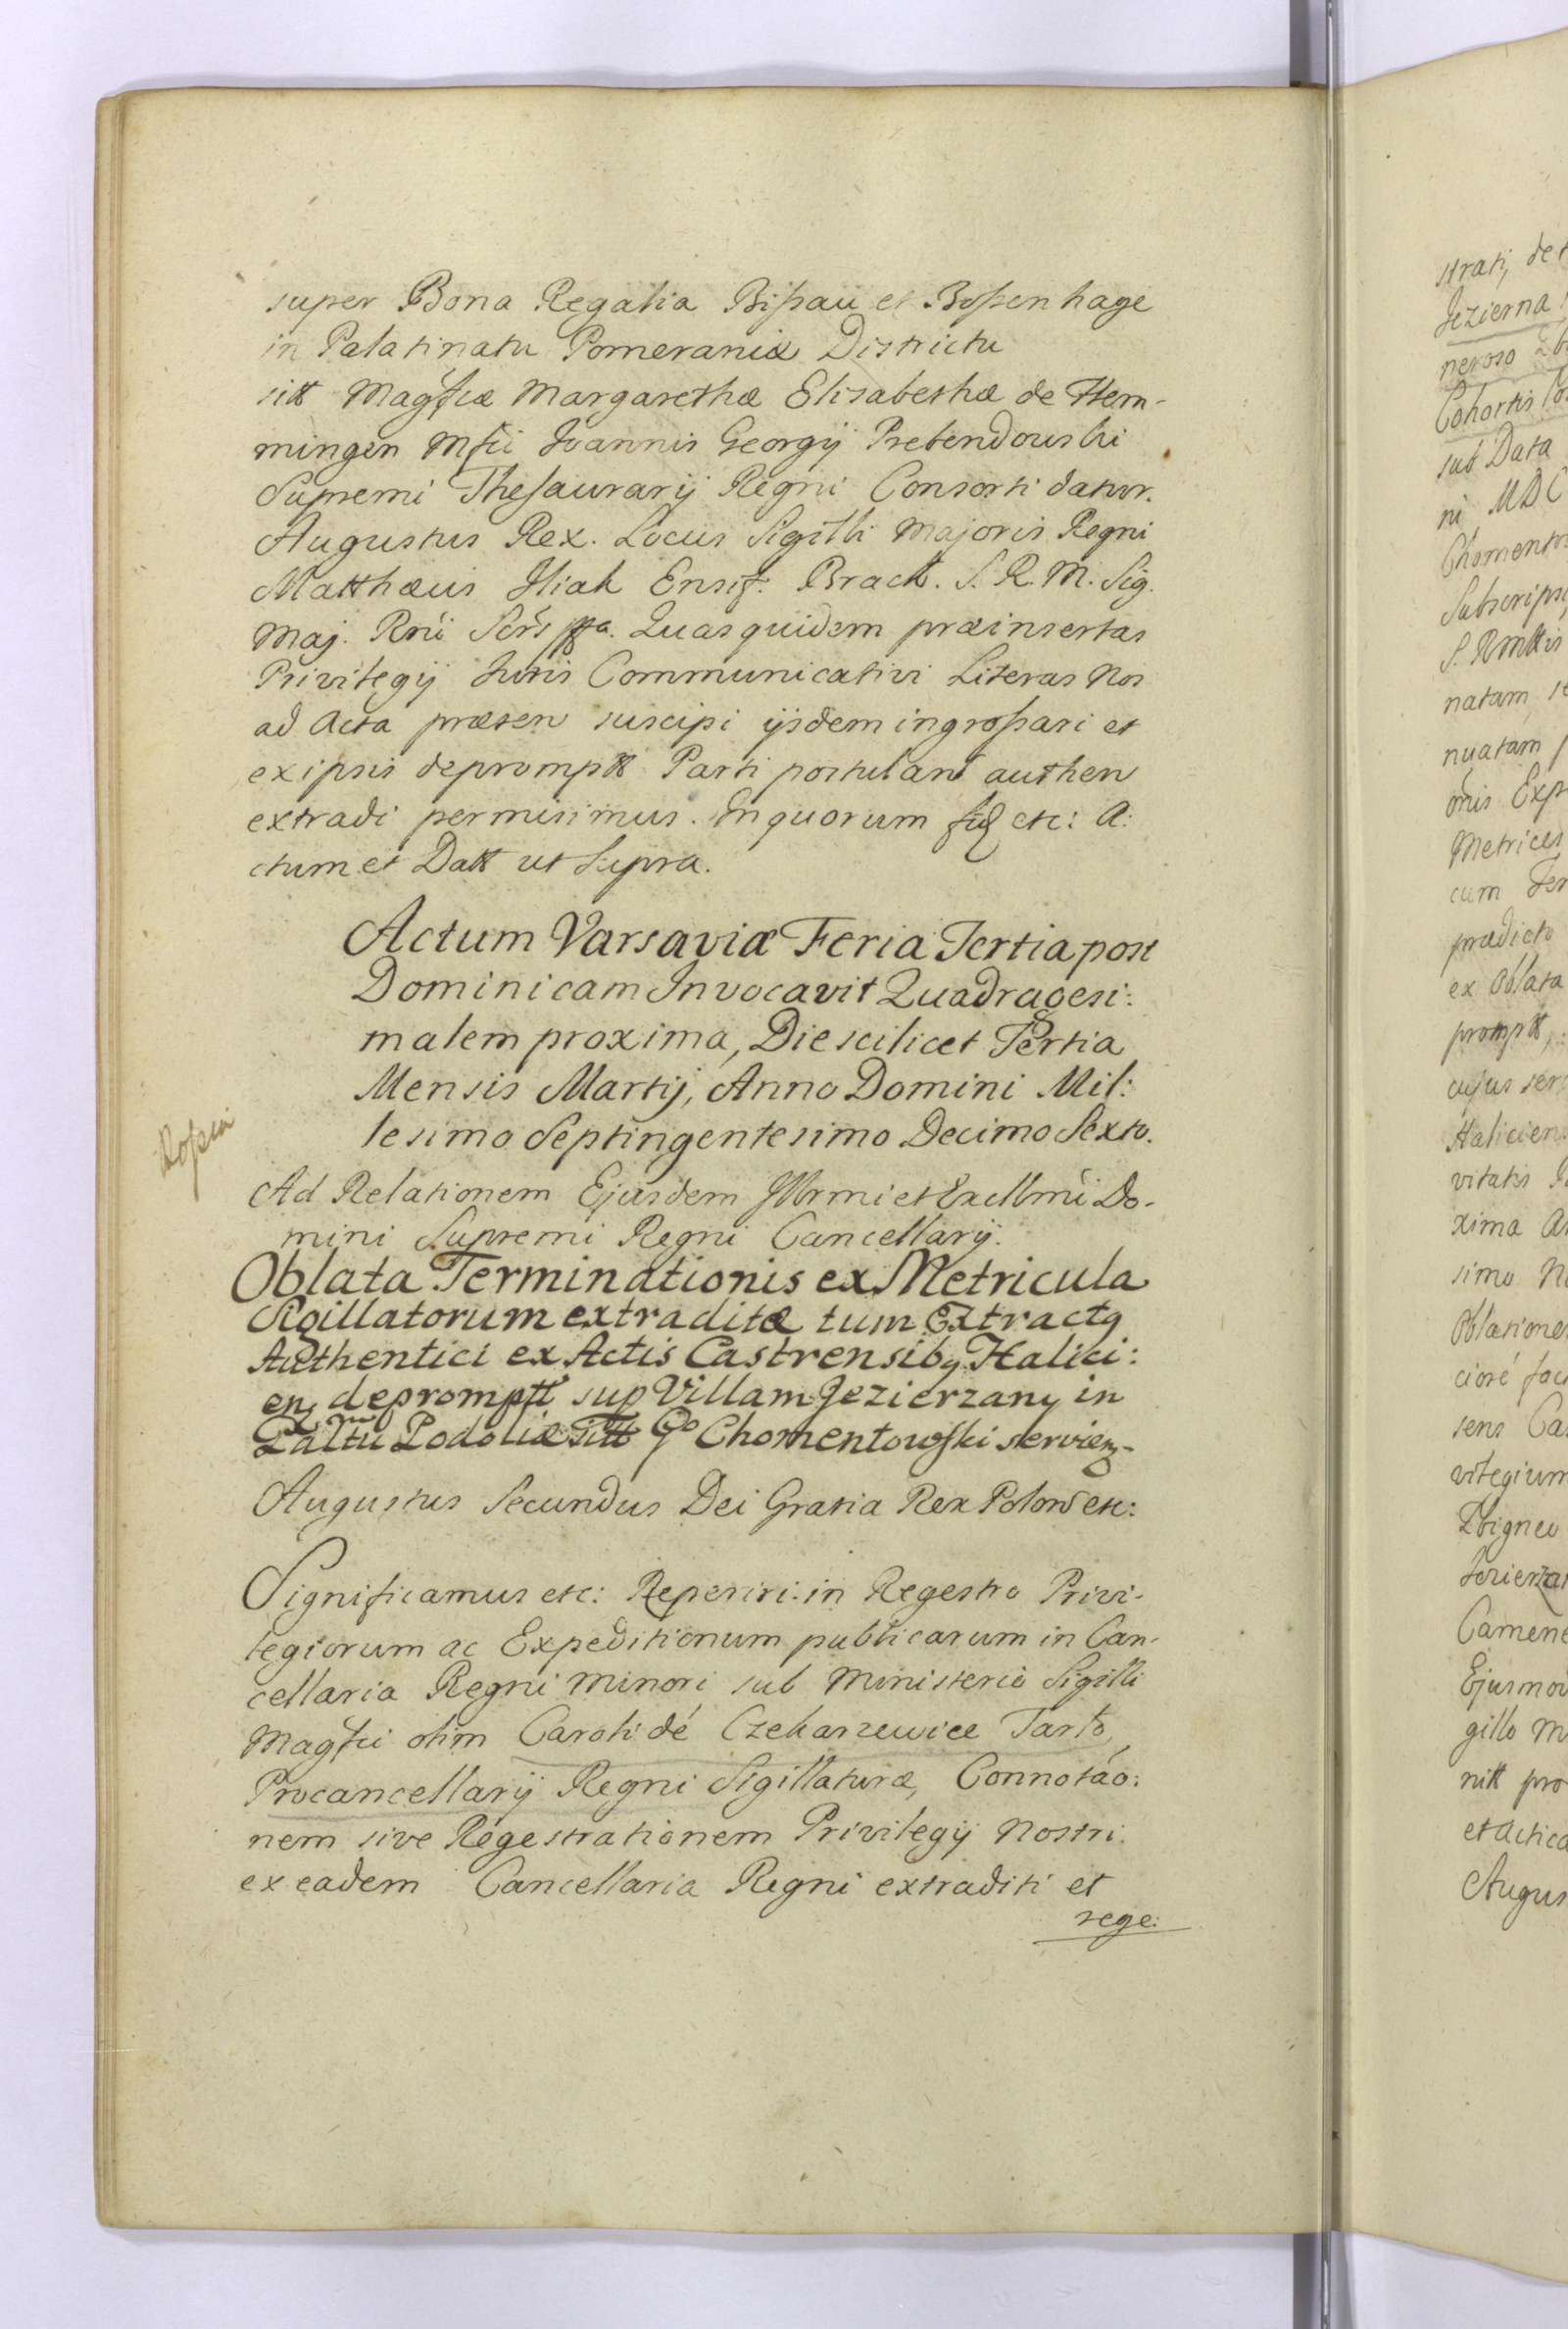 super Bona Regalia Bißau et Boßenhage
in Palatinatu Pomeraniæ Districtu
sitt Magfcæ Margarethæ Elisabethæ de Flem-
mingen Mfci Joannis Georgij Prebendowski
Supremi Thesaurarij Regni Consorti datur.
Augustus Rex. Locus Sigilli Majoris Regni
Matthæus Iliak Ensif: Brack. S. R. M. Sig.
Maj. Rnii Scrs ppa. Quasquidem præinsertas
Privilegij Juris Communicativi Literas Nos
ad Acta præsen suscipi ijsdem ingroßari et
ex ipsis depromptt Parti postulan authen
extradi permisimus. In quorum fid etc: A:
ctum et Datt ut Supra.
Actum Varsaviæ Feria Tertia post
Dominicam Invocavit Quadragesi:
malem proxima, Die scilicet Tertia
Mensis Martij, Anno Domini Mil:
lesimo Septingentesimo Decimo Sexto.
Ad Relationem Ejusdem Illrmi et Excllmi Do-
mini Supremi Regni Cancellarij.
Oblata Terminationis ex Metricula
Sigillatorum extraditæ tum Extractq
Authentici ex Actis Castrensibq Halici:
en, depromptt sup Villam Jezierzany in
Palttu Podoliæ sitt Go Chomentowski servien-
Augustus Secundus Dei Gratia Rex Polon etc:
Significamus etc: Reperiri in Regestro Privi-
legiorum ac Expeditionum publicarum in Can-
cellaria Regni Minori sub Ministerio Sigilli
Magfci olim Caroli dé Czekarzewice Tarło
Procancellarij Regni Sigillaturæ, Connotáo:
nem sive Regestrationem Privilegij Nostri
ex eadem Cancellaria Regni extraditi et
rege:
strati, de
Jezierna
neroso
Cohortis
sub Data
ni MDC
Chomento
Subscrips
S. RMttis
natam
nuatam
omis Exp
Metrices
cum Fer
prædicto
ex Oblata
promptt,
cujus ser
Halicien
vitatis
xima
simo
Oblatione
cioré fac
sens Ca
vilegium
Zbigneo
Jezierza
Camene
Ejusmo
gillo M
nitt pro
et Actica
Augus